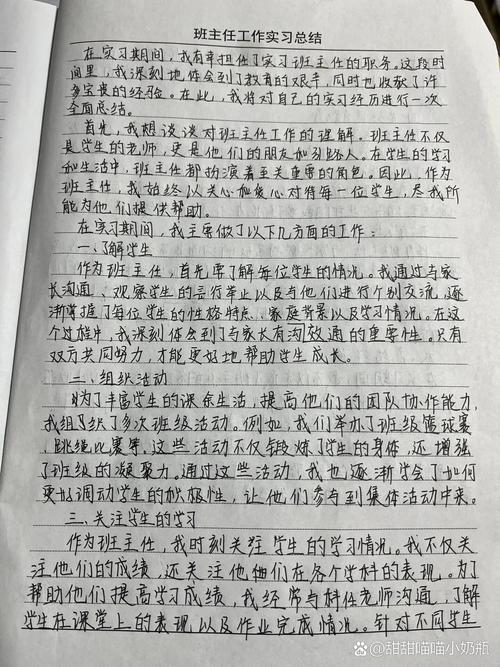 班主任工作实习总结
在实习期间，我有幸担任了实习班主任的职务。这段时
间里，我深刻地体会到了教育的艰辛，同时也收获了许
多宝贵的经验。在此，我将对自己的实习经历进行一次
全面总结。
首先，我想谈谈对班主任工作的理解。班主任不仅
是学生的老师，更是他们的朋友和引路人。在学生的学习
和生活中，班主任都扮演着至关重要的角色。因此，作为
班主任，我始终以关心和爱心对待每一位学生，尽我所
能为他们提供帮助。
在实习期间，我主要做了以下几方面的工作：
一、了解学生
作为班主任，首先要了解每位学生的情况。我通过与家
长沟通、观察学生的言行举止以及与他们进行个别交流，逐
渐掌握了每位学生的性格特点、家庭背景以及学习情况。在这
个过程中，我深刻体会到了与家长有沟效通的重要性。只有
双方共同努力，才能更好地帮助学生成长。
二、组织活动
为了丰富学生的课余生活，提高他们的团队协作能力，
我组织了多次班级活动。例如，我们举办了班级篮球赛
、跳绳比赛等，这些活动不仅锻炼了学生的身体，还增强
了班级的凝聚力。通过这些活动，我也逐渐学会了如何
更好调动学生的积极性，让他们参与到集体活动中来。
三、关注学生的学习
作为班主任，我时刻关注学生的学习情况。我不仅关
注他们的成绩，还关注他们在各个学科的表现。为了
帮助他们提高学习成绩，我经常与科任老师沟通，了解
学生在课堂上的表现以及作业完成情况。针对不同学生
@甜甜喵喵小奶瓶